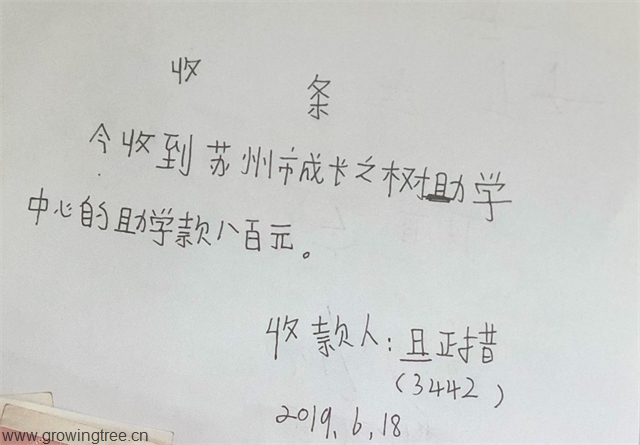 收 条
今收到苏州市成长之树助学
中心的助学款八百元。
收款人:且正措
(3442)
2019.6.18
www.growingtree.cn